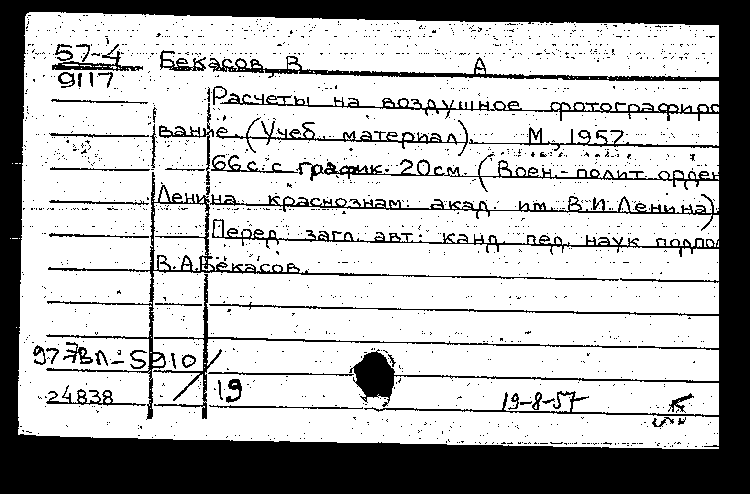 57-4 Бекасов, В А
9117
Расчеты на воздушное фотографиро
вание. (Учеб. материал). М., 1957.
66 с. с график. 20 см. (Воен.-полит. орден
Ленина краснознам. акад. им. В.И.Ленина).
Перед загл. авт: канд. пед. наук подпо
В.А.Бекасов.
5910
24838 19 19-8-57